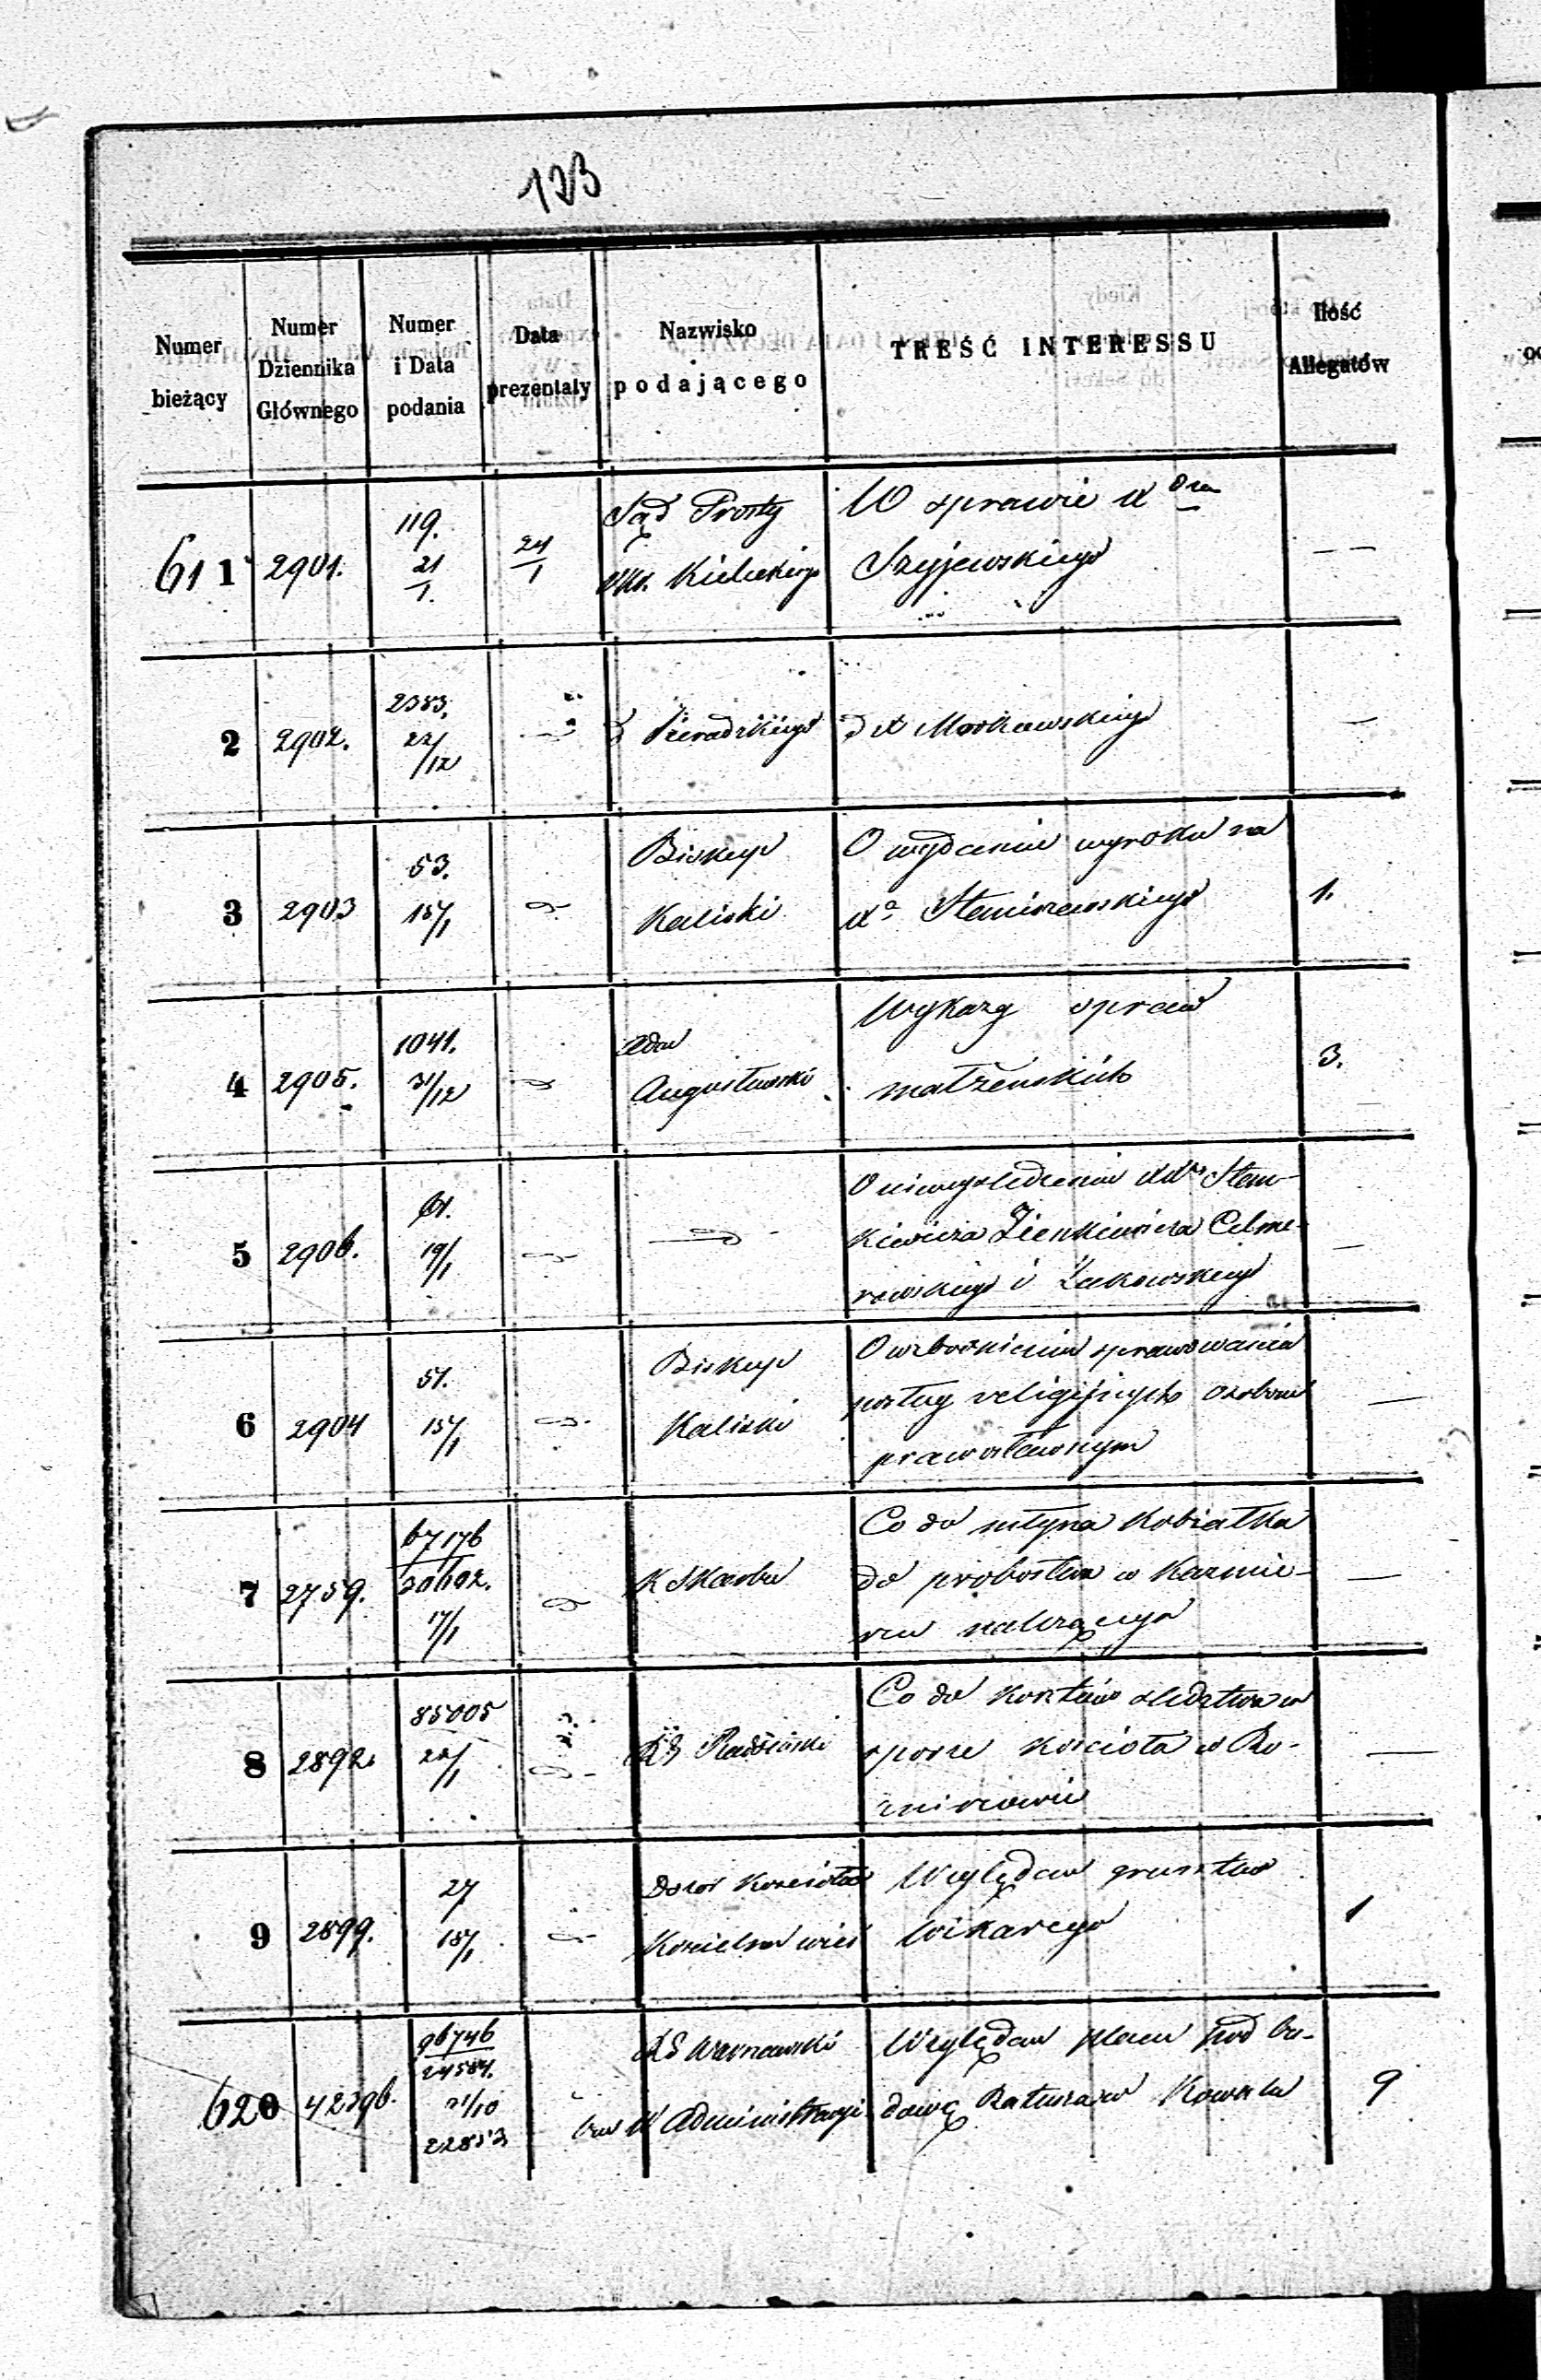 123
Numer bieżący
Numer Dziennika Głównego
Numer i Data podania
Data prezentaty
Nazwisko podającego
TREŚĆ INTERESSU
Ilość Allegatów
611 2901. 119. 21/1. 24/1 Sąd Prosty Kieleckiego W sprawie X Szyjewskiego — —
2 2902. 2383. 22/12 Sieradzkiego d X Morkowskiego —
3 2903 53. 15/1 Biskup Kaliski O wydaniu wyroku na Xa Staniszewskiego 1.
4 2905. 1041. 31/12 Adm Augustowski Wykazy spraw małżeńskich 3.
5 2906. 61. 19/1 O niewyśledzeniu Stan-
kiewicza Zienkiewicza Celme-
rowskiego i Żukowskiego —
6 2904 51. 15/1 Biskup Kaliski O wzbronieniu sprawowania
posług religijnych osobom
prawosławnym —
7 2759. 67176 17/1 K Skarbu Co do młyna Kobiałka
do probostwa w Kazmie-
rzu należącego —
8 2892. 85005 22/1 Radomski Co do kosztów śledztwa w
sporze kościoła w Ro-
—
9 2899. 27 15/1 Dozór Kościoła Kościelna wieś Względem gruntu Wikarego 1
620 42396. 96746 24584. 21/10 22853 Warszawski W Administracyi Względem placu pod bu-
dowę Ratusza w Kowalu 9